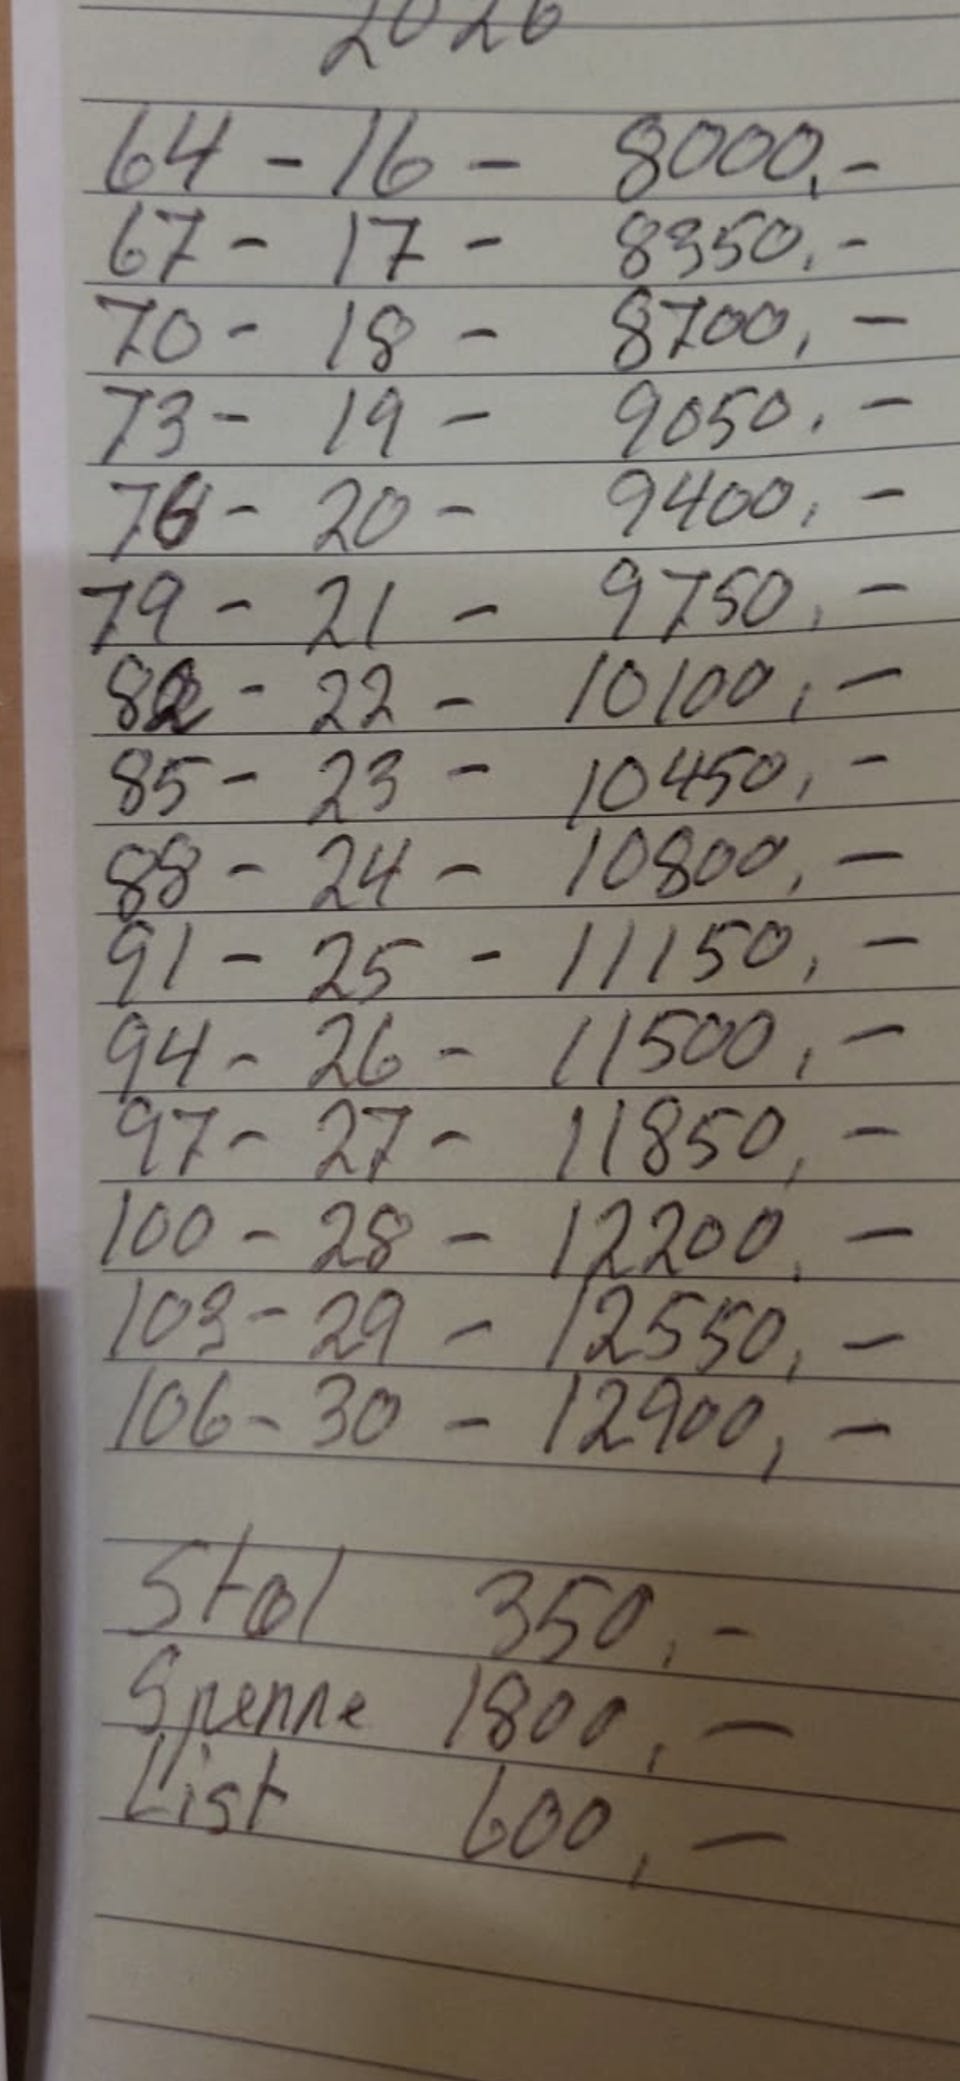 2026
64 - 16 - 8000,-
67 - 17 - 8350,-
70 - 18 - 8700,-
73 - 19 - 9050,-
76 - 20 - 9400,-
79 - 21 - 9750,-
82 - 22 - 10100,-
85 - 23 - 10450,-
88 - 24 - 10800,-
91 - 25 - 11150,-
94 - 26 - 11500,-
97 - 27 - 11850,-
100 - 28 - 12200,-
103 - 29 - 12550,-
106 - 30 - 12900,-
Stol 350,-
Spenne 1800,-
List 600,-